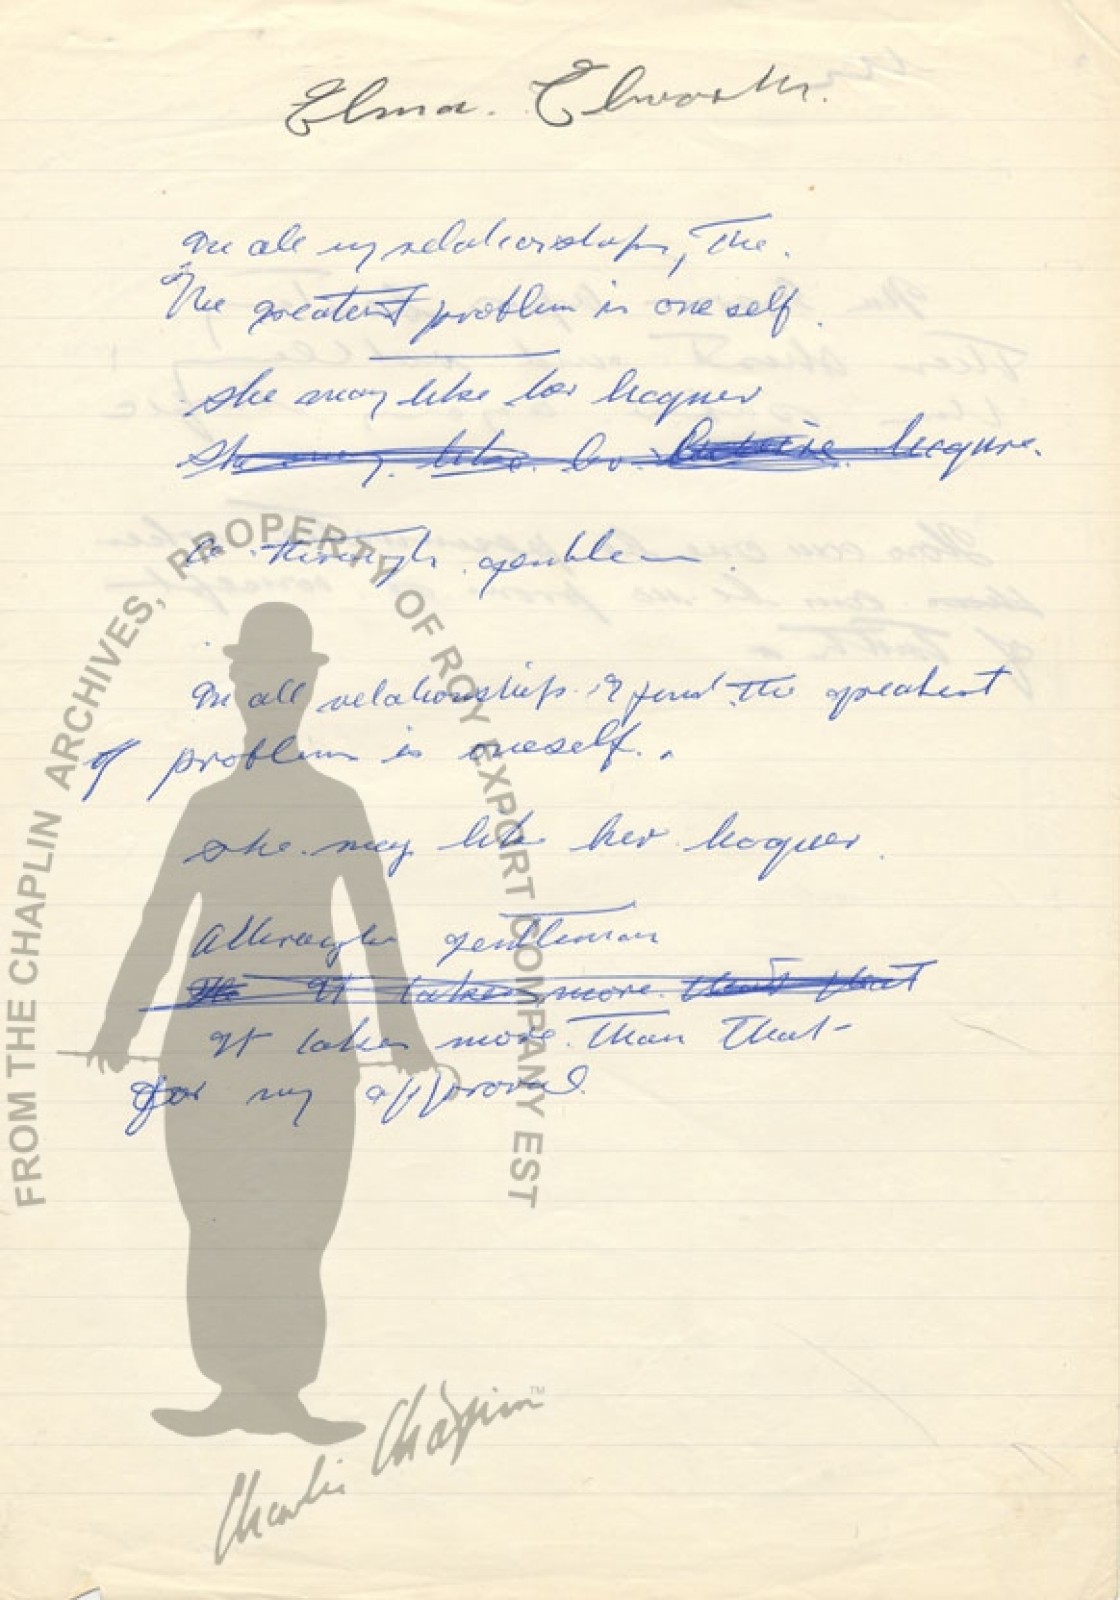 Elma. Elworth.
In all my relationships, The.
The greatest problem is one self.
she may like her lacquer
She may like lacqure.
through
In all relationships I find the greatest
of problem is oneself.
she may like her lacquer.
Although gentleman
It takes more that that
It takes more Than that
for my approval.
FROM THE CHAPLIN ARCHIVES, PROPERTY OF ROY EXPORT COMPANY EST
Charlie Chaplin TM